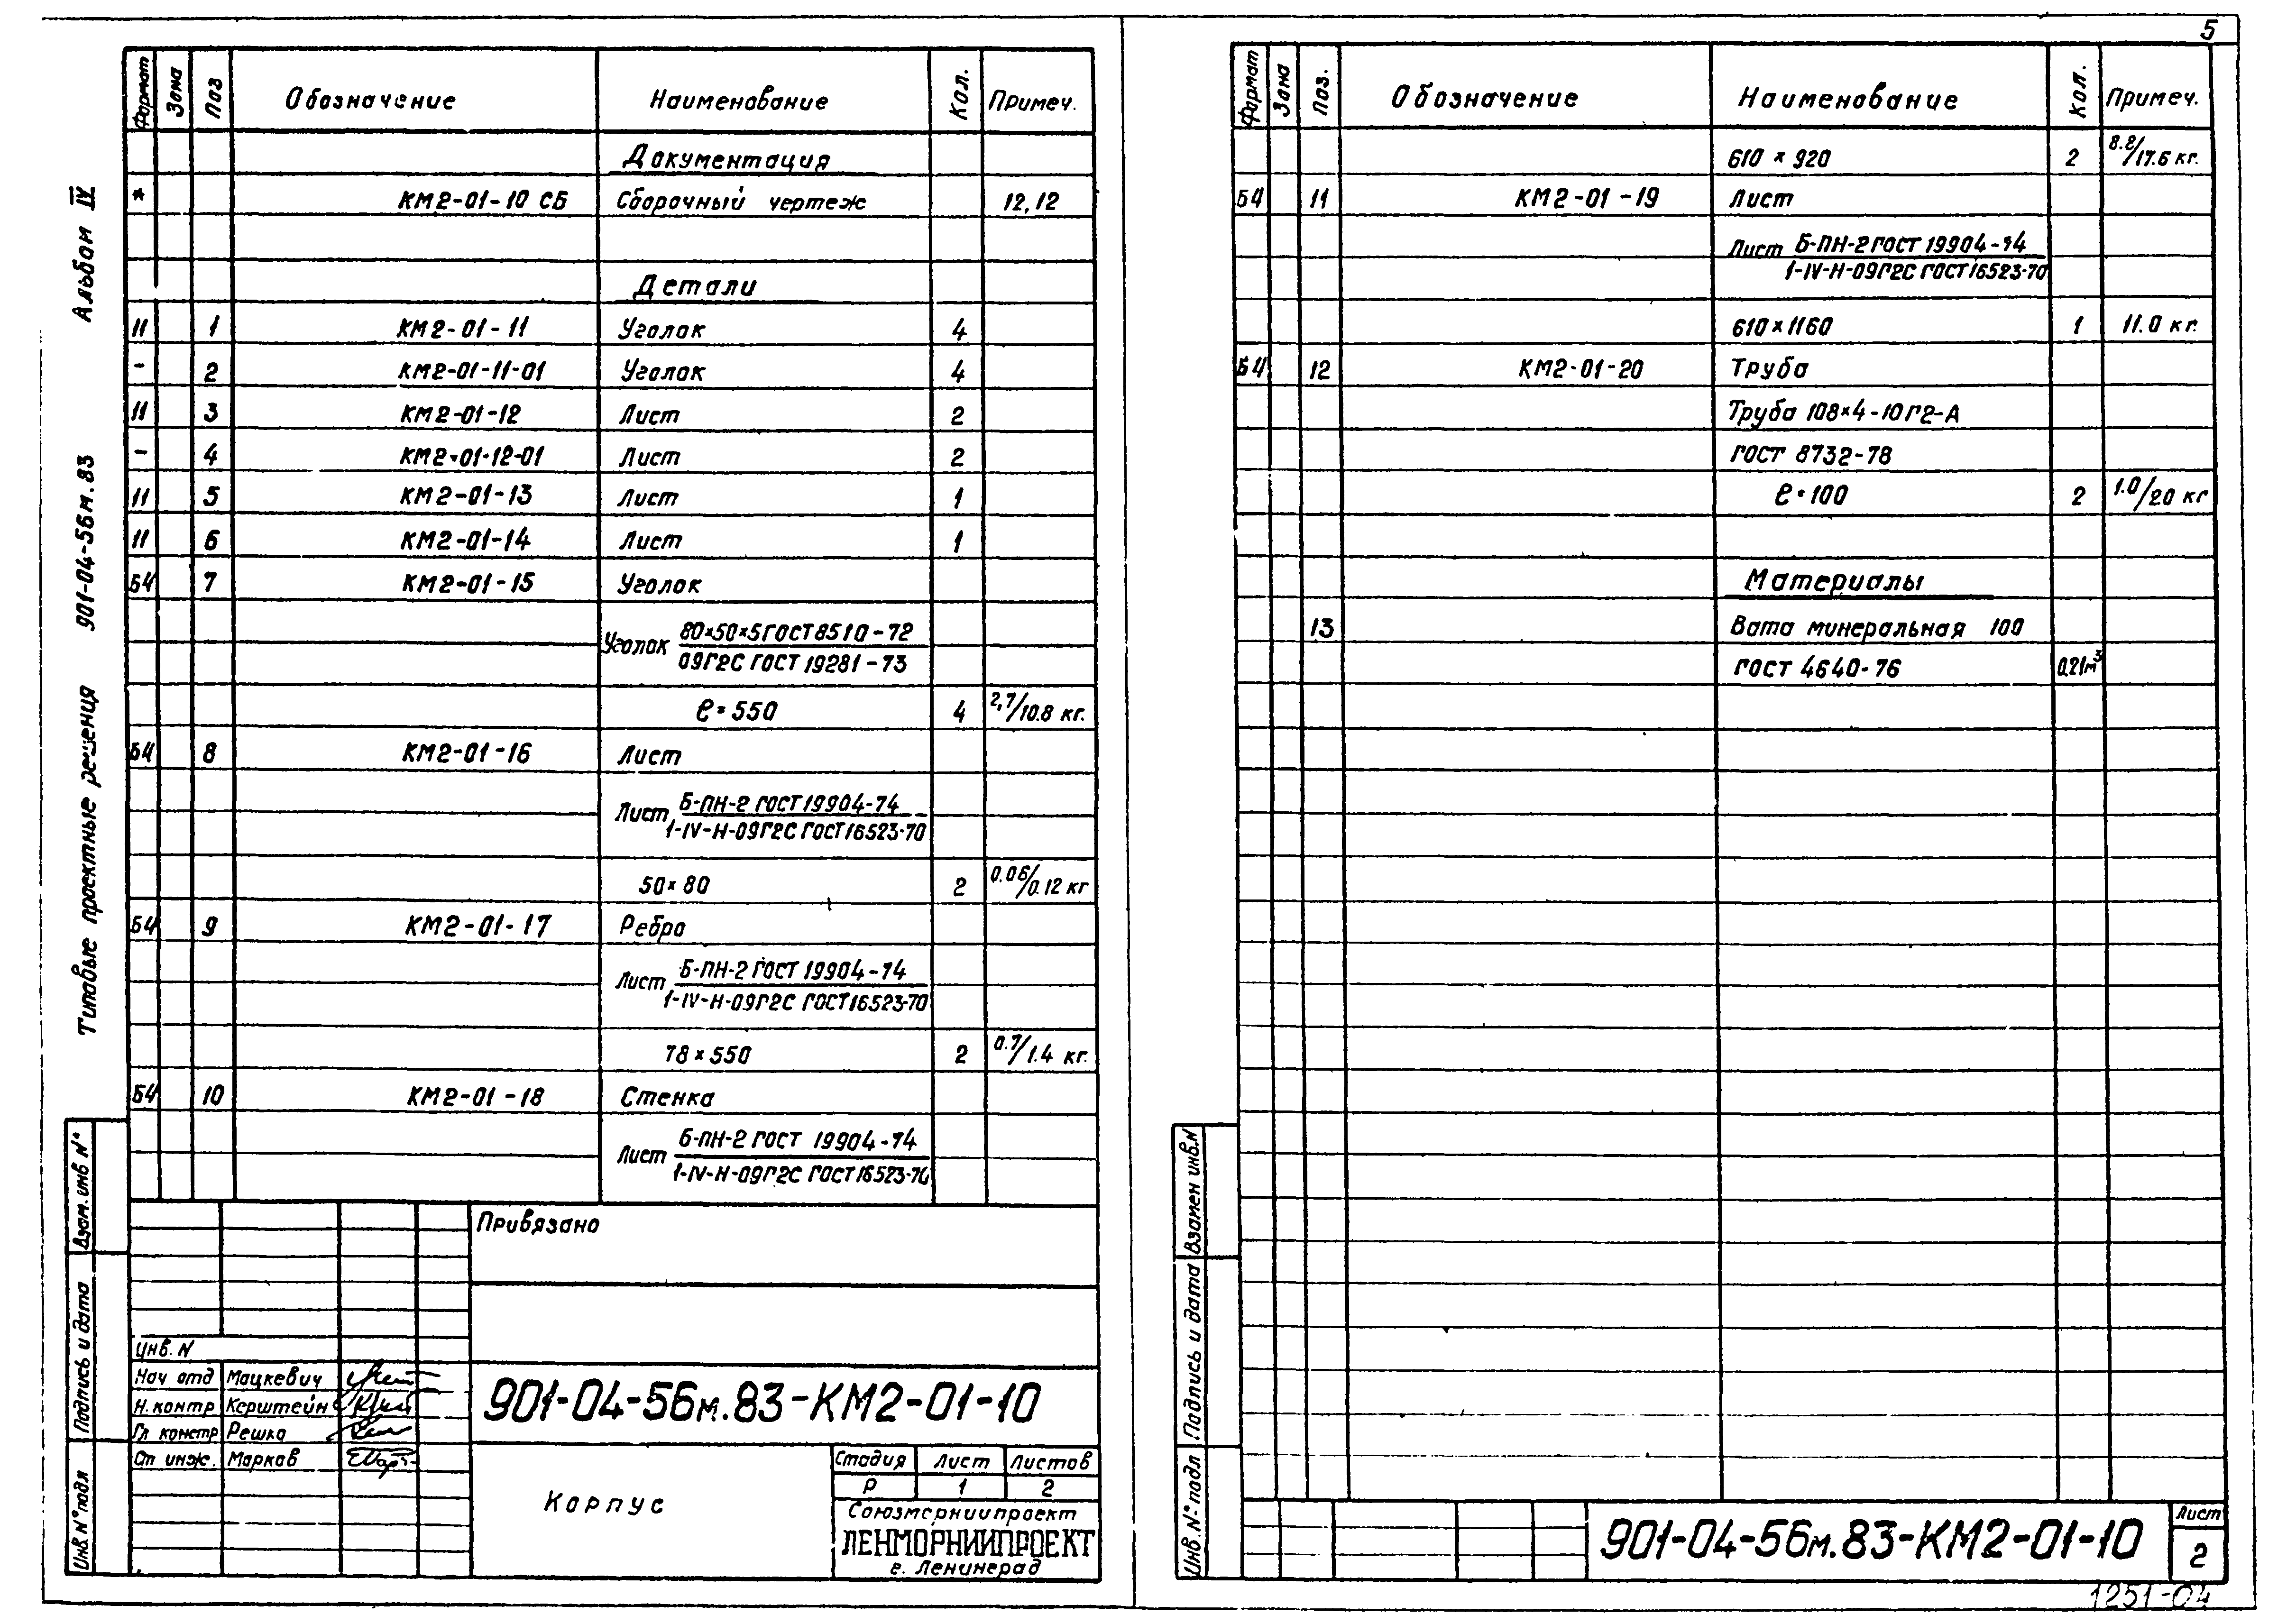 5
Альбом IV
901-04-56м.83
Типовые проектные решения
Формат Зона Поз Обозначение Наименование Кол. Примеч.
Документация
* КМ2-01-10 СБ Сборочный чертеж 12,12
Детали
11 1 КМ2-01-11 Уголок 4
- 2 КМ2-01-11-01 Уголок 4
11 3 КМ2-01-12 Лист 2
- 4 КМ2-01-12-01 Лист 2
11 5 КМ2-01-13 Лист 1
11 6 КМ2-01-14 Лист 1
Б4 7 КМ2-01-15 Уголок
Уголок 80×50×5 ГОСТ 8510-72
09Г2С ГОСТ 19281-73
ℓ=550 4 2,7/10.8 кг.
Б4 8 КМ2-01-16 Лист
Лист Б-ПН-2 ГОСТ 19904-74
1-IV-Н-09Г2С ГОСТ 16523-70
50×80 2 0.06/0.12 кг
Б4 9 КМ2-01-17 Ребро
Лист Б-ПН-2 ГОСТ 19904-74
1-IV-Н-09Г2С ГОСТ 16523-70
78×550 2 0.7/1.4 кг.
Б4 10 КМ2-01-18 Стенка
Лист Б-ПН-2 ГОСТ 19904-74
1-IV-Н-09Г2С ГОСТ 16523-70
Привязано
Инв. N
Нач отд Мацкевич
Н.контр Керштейн
Гл констр Решко
Ст инж. Марков
901-04-56м.83-КМ2-01-10
Корпус
Стадия Лист Листов
Р 1 2
Союзморниипроект
ЛЕНМОРНИИПРОЕКТ
г. Ленинград
Взам. инв N°
Подпись и дата
Инв.N°подл
Формат Зона Поз. Обозначение Наименование Кол. Примеч.
610×920 2 8.8/17.6 кг.
Б4 11 КМ2-01-19 Лист
Лист Б-ПН-2 ГОСТ 19904-74
1-IV-Н-09Г2С ГОСТ 16523-70
610×1160 1 11.0 кг.
Б4 12 КМ2-01-20 Труба
Труба 108×4-10Г2-А
ГОСТ 8732-78
ℓ=100 2 1.0/20 кг
Материалы
13 Вата минеральная 100
ГОСТ 4640-76 0.21м³
Взамен инв.N
Подпись и дата
Инв.N° подл
901-04-56м.83-КМ2-01-10
Лист
2
1251-04